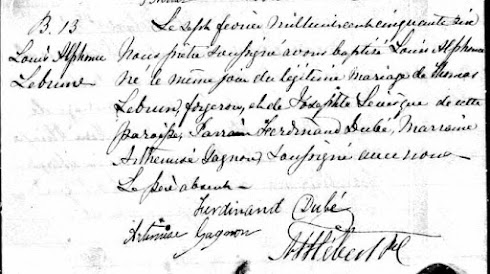 B. 13
Louis Alphonse
Lebrun
Le sept fevrier mil huit cent cinquante six
Nous prêtre soussigné avons baptisé Louis Alphonse
né le même jour du légitime mariage de Thomas
Lebrun, forgeron, et de Josephte Levêque de cette
paroisse, Parrain Ferdinand Dubé, Marraine
Arthemise Gagnon, soussigné avec nous
Le père absent.
Ferdinand Dubé
Artémise Gagnon
Hébert